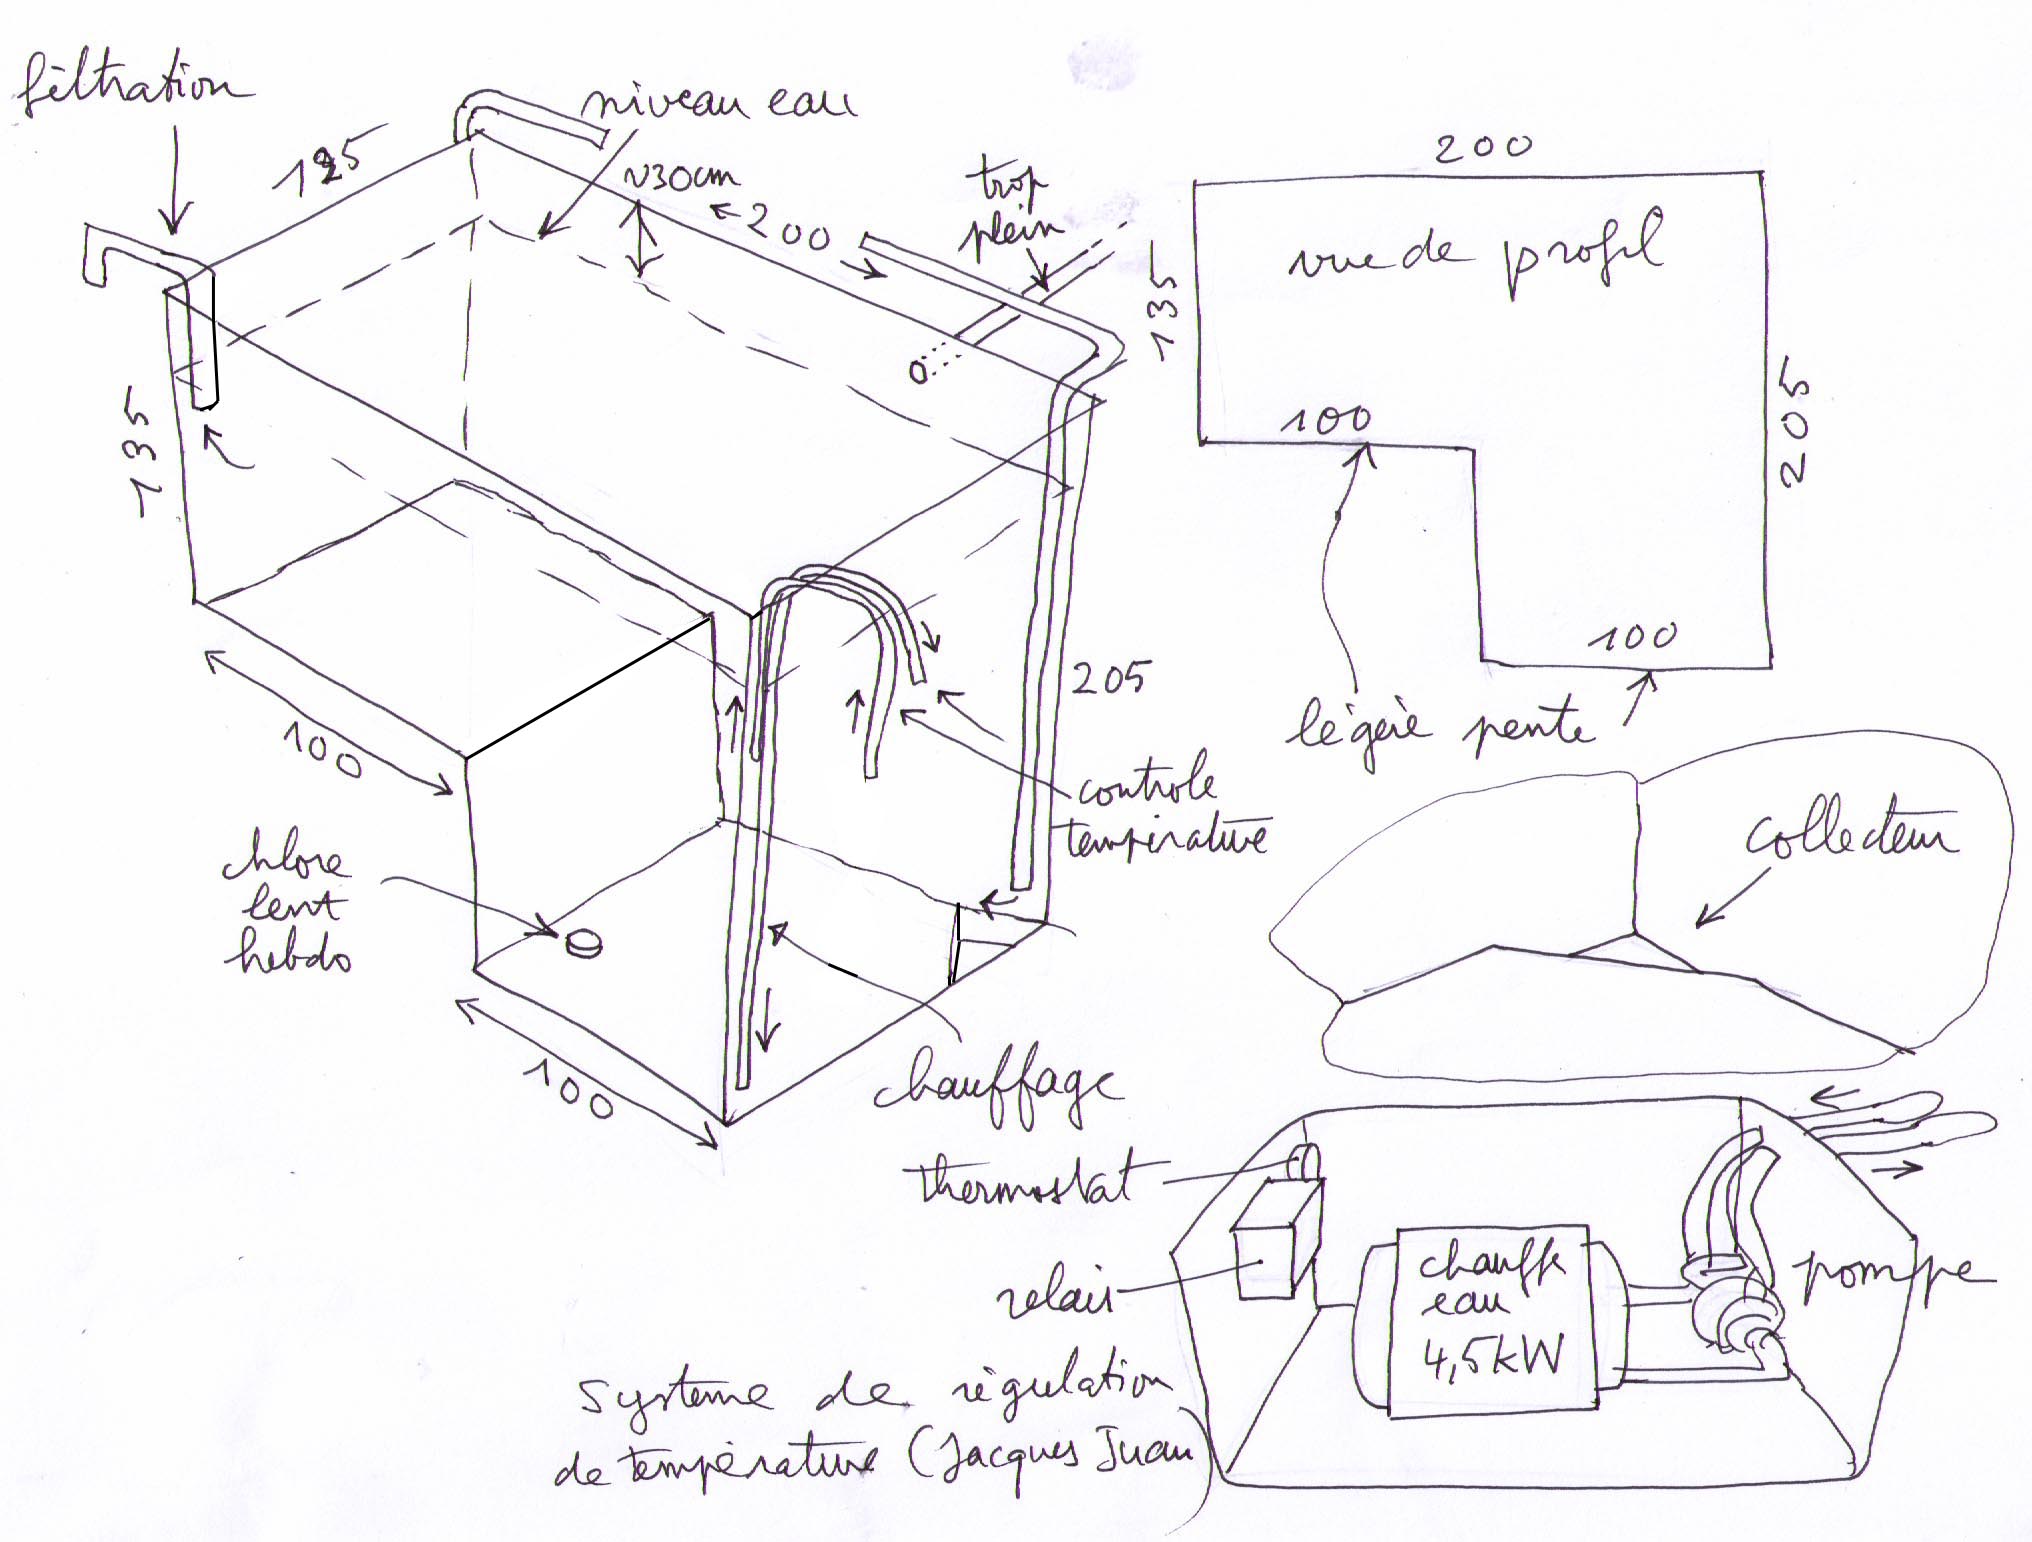 filtration
125
niveau eau
~30cm
←200→
trop
plein
135
chlore
lent
hebdo
100
100
205
controle
température
chauffage
200
vue de profil
135
205
100
100
légère pente
collecteur
thermostat
relais
chauffe
eau
4,5kW
pompe
système de régulation
de température (Jacques Juan)